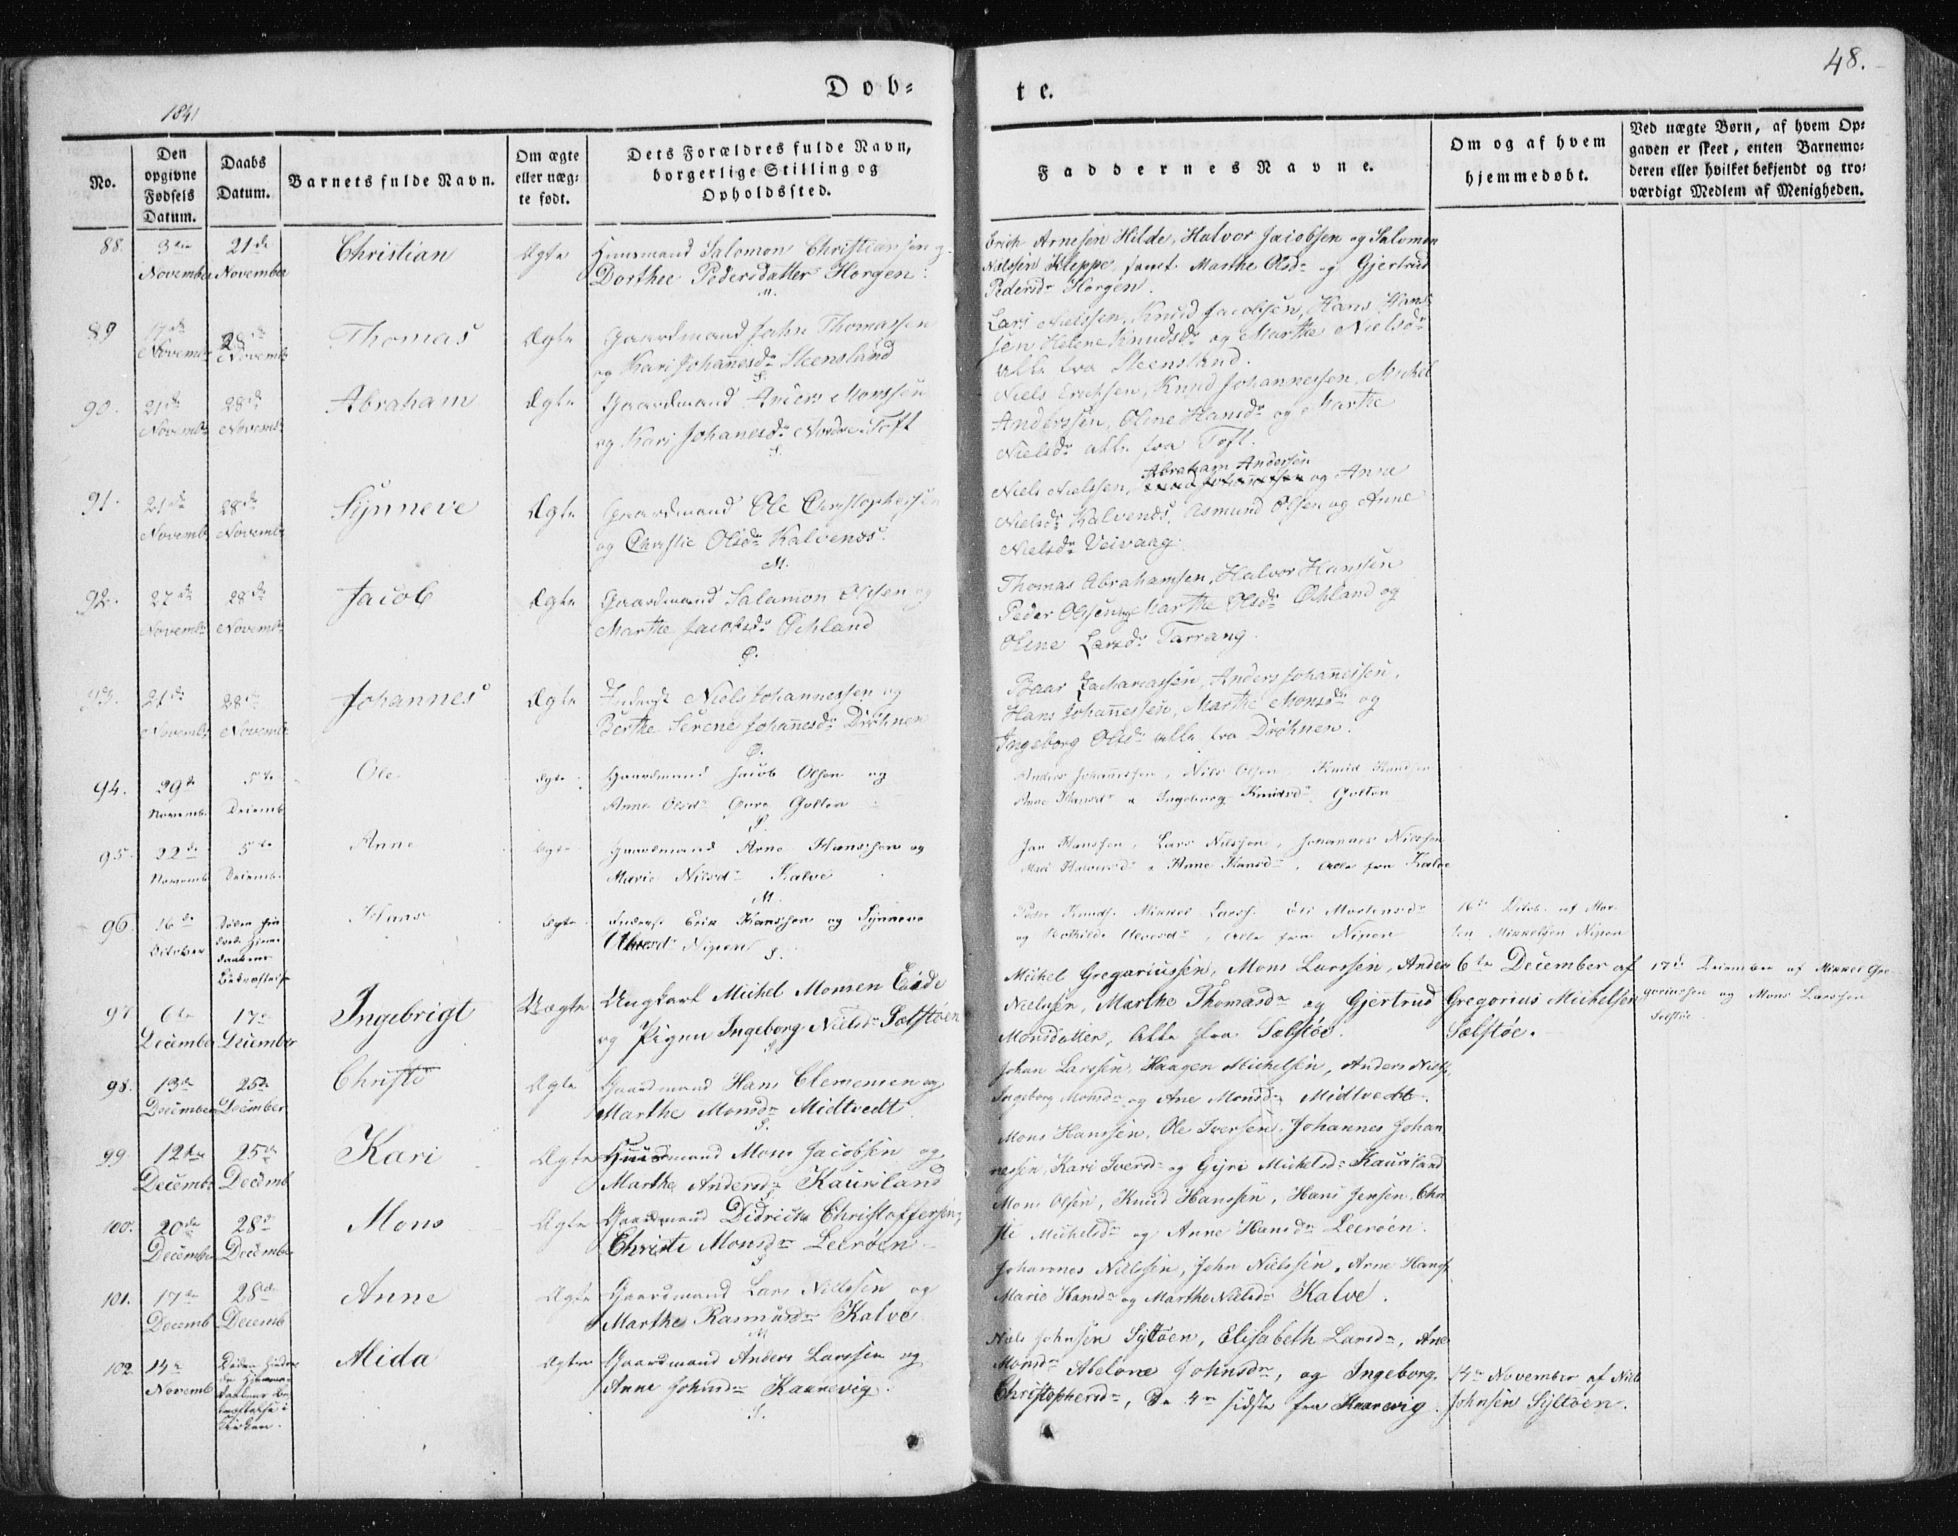 48.
Døb-
te.
1841
No.
Den opgivne Fødsels Datum.
Daabs Datum.
Barnets fulde Navn.
Om ægte eller nægte født.
Dets Forældres fulde Navn, borgerlige Stilling og Opholdssted.
Faddernes Navne.
Om og af hvem hjemmedøbt.
Ved nægte Børn, af hvem Opgaven er skeet, enten Barnemoderen eller hvilket bekjendt og troværdigt Medlem af Menigheden.
88. 3die November 21de November Christian Ægte Huusmand Salomon Christiansen og
Dorthee Pedersdatter Horgen.
Erich Arnesen Hilde, Halvor Jacobsen og Salomon
Nilssen Kleppe, samt Marthe Olsdr og Gjertrud
Pedersdr Horgen.
89 17de Novembr 28de Novembr Thomas Ægte Gaardmand John Thomassen
og Kari Johannesdr Steensland
Lars Nielssen, Knud Jacobsen, Hans Hans-
sen Helene Knudsdr og Marthe Nielsdr
alle fra Steensland.
90. 21de Novembr 28de Novembr Abraham Ægte Gaardmand Anders Monssen
og Kari Johanesdr Nordre-Toft
Niels Erichsen, Knud Johannessen, Michel
Anderssen, Oline Hansdr og Marthe
Nielsdr alle fra Toft.
91. 21de Novembr 28de Novembr Synneve Ægte Gaardmand Ole Christophersen
og Christie Olsdr Kalvenæs.
Abraham Andersen
Niels Nielssen, Knud Johannessen og Anna
Nielsdr Kalvenæs, Asmund Olsen og Anne
Nielsdr Veivaag.
92. 27de Novembr 28de Novembr Jacob Ægte Gaardmand Salamon Olsen og
Marthe Jacobsdr Øchland
Thomas Abrahamsen, Halvor Hanssen
Peder Olsen, Marthe Olsdr Øchland og
Oline Larsdr Tarrang.
93. 21de Novembr 28de Novembr Johannes Ægte Inderst Niels Johannessen og
Berthe Serene Johannesdr Drøhnen
Baar Zachariassen, Anders Johannessen,
Hans Johannessen, Marthe Monsdr og
Ingeborg Olsdr alle fra Drøhnen.
94. 29de Novemb. 5te Decemb Ole Ægte Gaardmand Jacob Olsen og
Anne Olsdr Øvre Golten
Anders Johannessen, Nils Olsen, Knud Hanssen
Anne Hansdr & Ingeborg Knudsdr Golten
95. 22de Novemb 5te Decemb. Anne Ægte Gaardmand Arne Hanssen og
Marie Nilsdr Kalve
Jan Hanssen, Lars Nilssen, Johannes Nilssen
Mari Halvorsdr & Anne Hansdr, Alle fra Kalve
96 16de October Hans Ægte Inderst Erik Hanssen og Synneva
Nipen
Peder Knuds. Mikkel Larss. Eli Mortensdr
og, Alle fra Nipen
16de Octob. af Mor-
ten Mikkelsen Nipen
97 6te December 17de December Ingebrigt Uægte Ungkarl Michel Monsen Eide
og Pigen Ingeborg Nielsdr Sælstøen
Michel Gregoriussen, Mons Larssen, Anders
Nielsen, Marthe Thomasdr og Gjertrud
Monsdatter, Alle fra Sælstøe.
6te December af
Gregorius Michelsen
Sælstøe.
17de December af Mikkel Gre-
goriussen og Mons Larssen
Selstøe
98. 13de December 25de December Christi Ægte Gaardmand Hans Clemensen og
Marthe Monsdr Midtvedt.
Johan Larssen, Haagen Michelsen, Anders Niels.
Ingeborg Monsdr og Ane Monsdr Midtvedt.
99. 12te Decembr 25de Decemb Kari Ægte Huusmand Mons Jacobsen og
Marthe Andersdr Kausland
Mons Hanssen, Ole Iversen, Johannes Johan-
nessen, Kari Iversdr og Gjri Michelsdr Kausland
100. 20de December 28de December Mons Ægte Gaardmand Didrich Christoffersen,
Christi Monsdr Leerøen
Mons Olsen, Knud Hanssen, Hans Jensen, Chri-
sti Michelsdr og Anne Hansdr Leerøen.
101. 17de Decemb 28de Decemb Anne Ægte Gaardmand Lars Nielssen og
Marthe Rasmusdr Kalve
Johannes Nielssen, John Nielssen, Arne Hanss.
Marie Hansdr og Marthe Nielsdr Kalve.
102. 14de Novemb Alida Ægte Gaardmand Anders Larssen og
Anne Johnsdr Kaarevig.
Niels Johnsen Syltøen, Elisabeth Larsdr, Ane
Monsdr Abelone Johnsdr, og Ingeborg
Christophersdr, De 4re sidste fra Kaarevig.
14de November af Niels
Johnsen Syltøen.